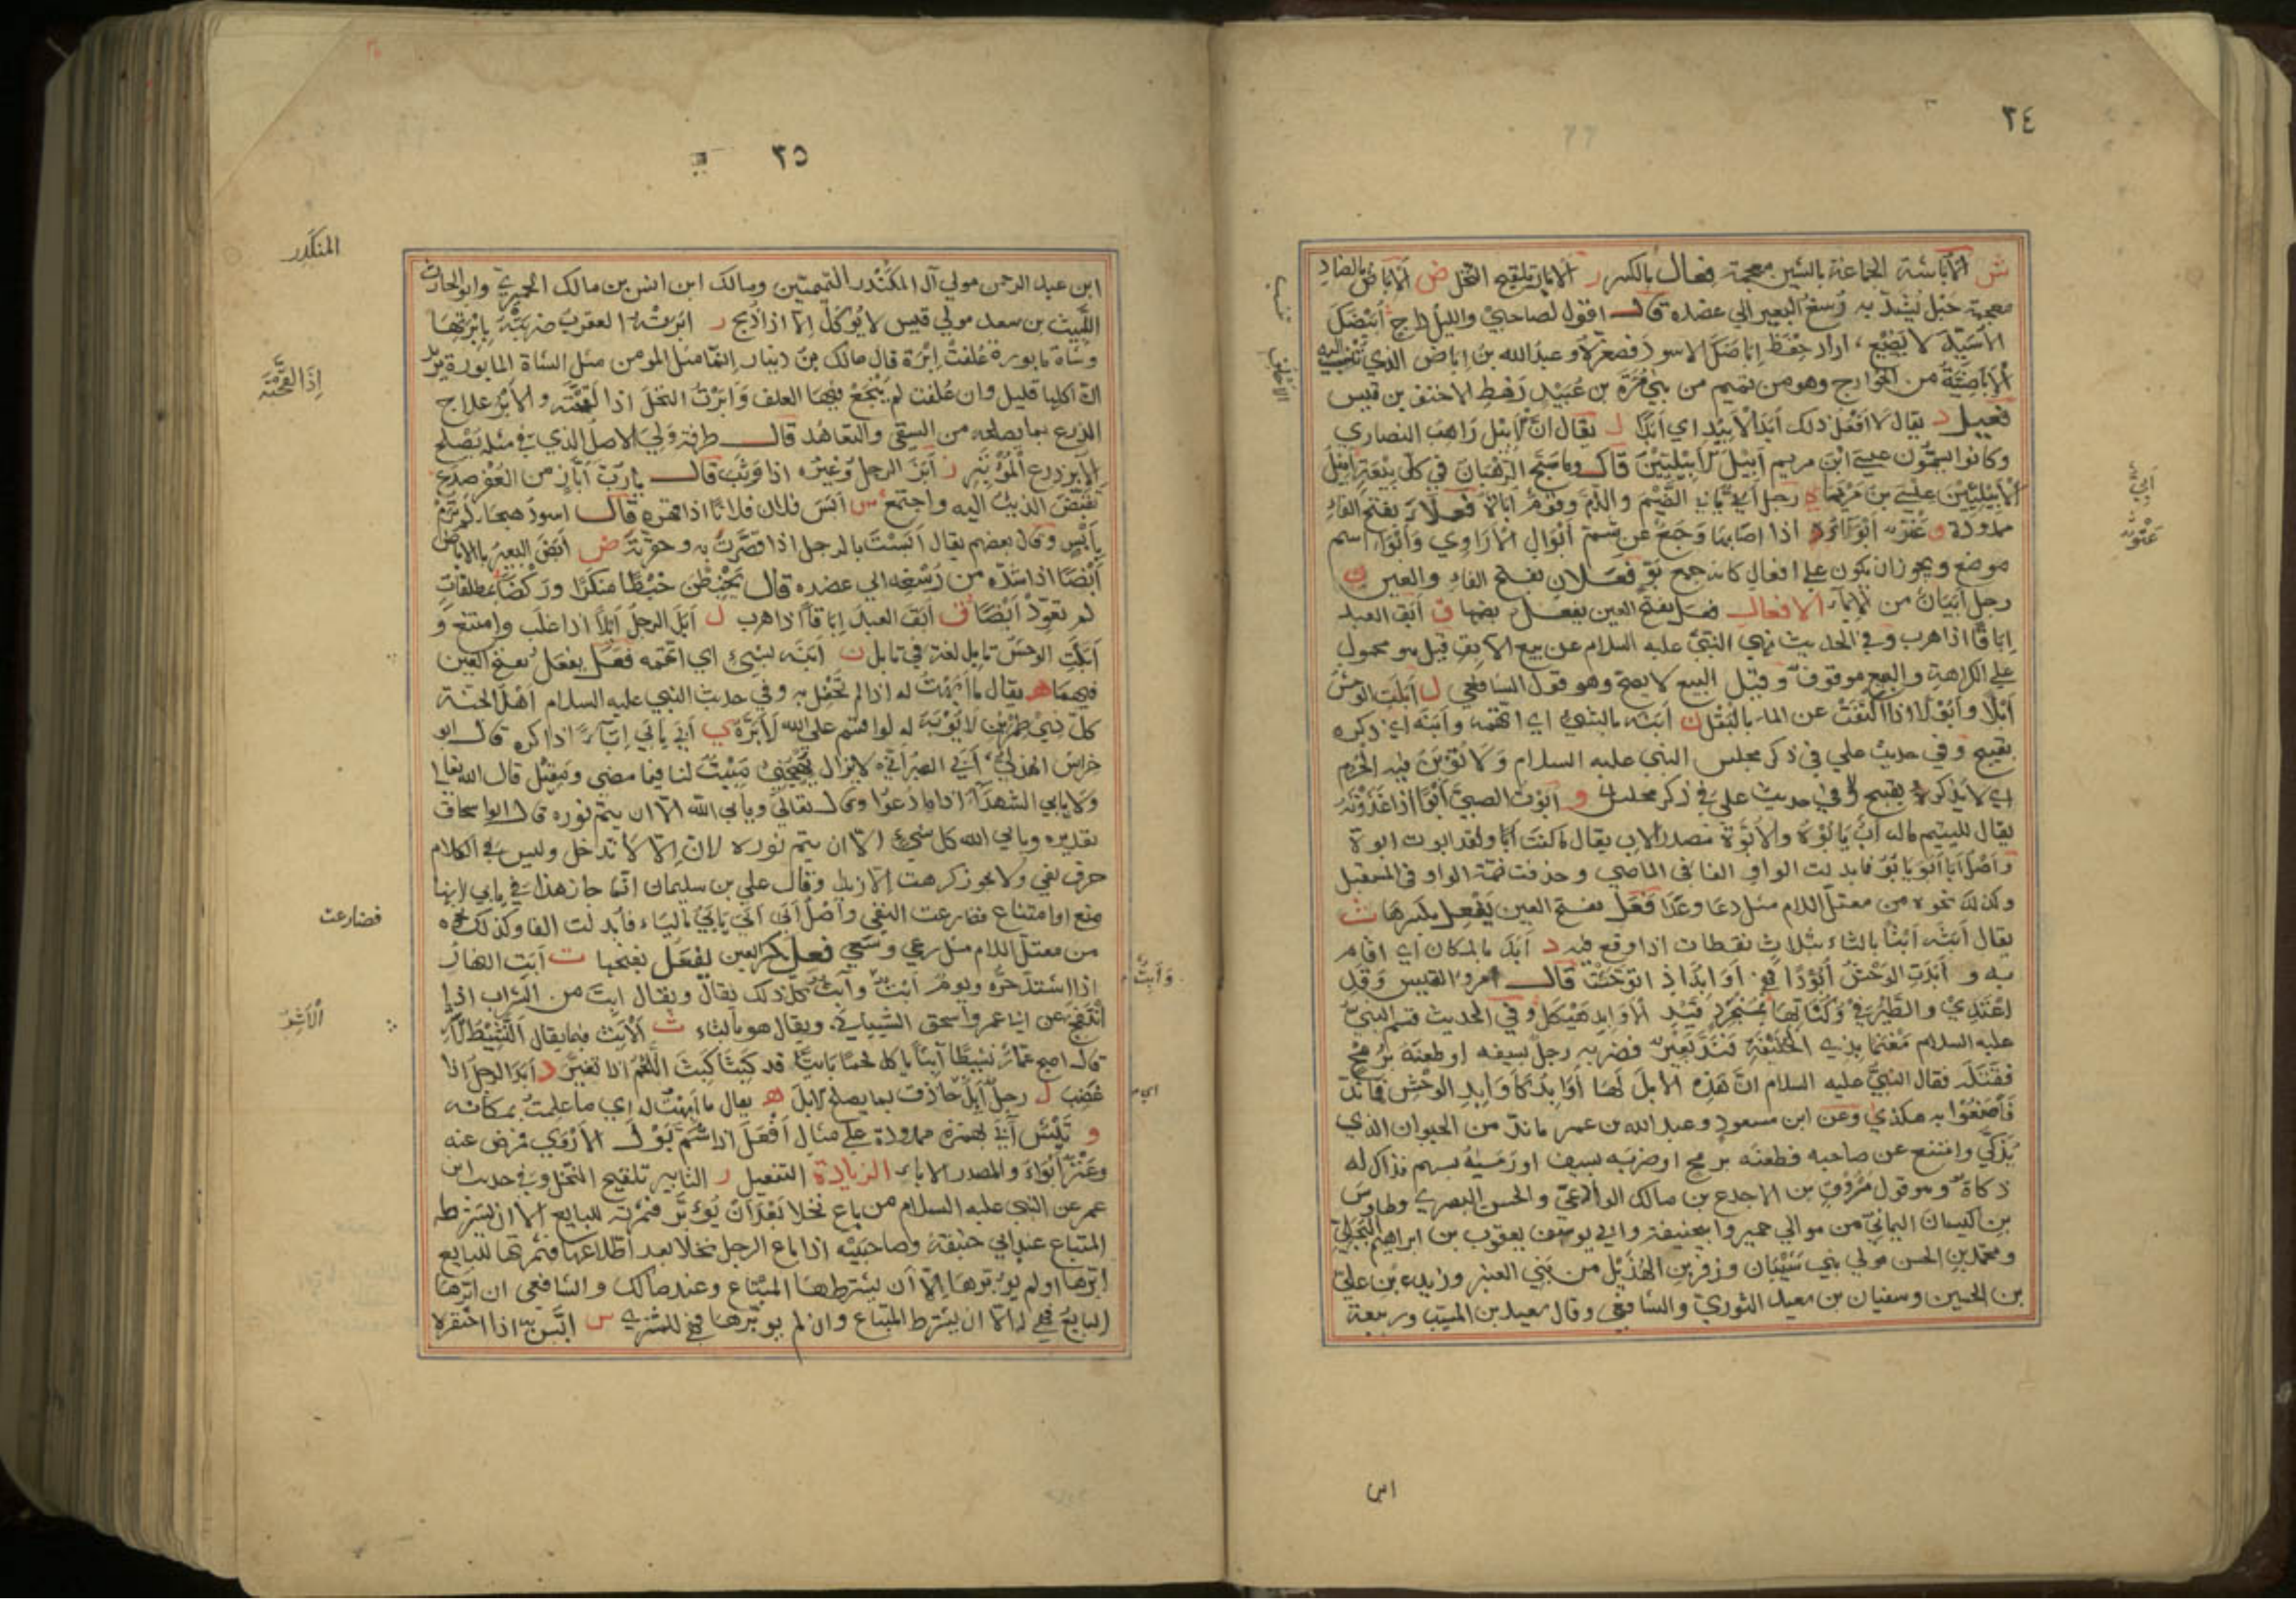 ٣٤
ش الأباشة الجماعة بالشين معجمة فعال بالكسر ر الابار تلقيح النخل ض الاباض بالضاد
معجمة حبل يشد به رسغ البعير الي عضده قال اقول لصاحبي والليل داج ابيضك
الاسيد لا يضيع اراد احفظ اباضك الاسود فصغره وعبد الله بن اباض الذي تنسب اليه
الاباضية من الخوارج وهو من تميم من بني مرة بن عبيد رهط الاحنف بن قيس
فعيل د يقال لا افعل ذلك ابد الابيد اي ابدا ل يقال ان الابيل راهب النصاري
وكانوا يسمون عيسي ابن مريم ابيل الابيليين قال وما سبح الرهبان في كل بيعة ابيل
الابيليين عيسي بن مريما ي رجل ابي يابي الضيم والذم وقوم اباة فعلاء بفتح الفاء
ممدودة و عنز ابواء اذا اصابها وجع عن شم ابوال الاراوي وابواء اسم
موضع ويجوز ان يكون علي افعال كانه جمع بو فعلان بفتح الفاء والعين ي
رجل ابيان من الاباء الافعال فعل بفتح العين يفعل بضمها ق ابق العبد
اباقا اذا هرب وفي الحديث نهي النبي عليه السلام عن بيع الابق قيل هو محمول
علي الكراهة والبيع موقوف وقيل البيع لا يصح وهو قول الشافعي ل ابلت الوحش
ابلا وابولا اذا اكتفت عن الماء بالبقل ن ابنه بالشيء اي اتهمه وابنه اي ذكره
بقبيح وفي حديث علي في ذكر مجلس النبي عليه السلام ولا تؤبن فيه الحرم
اي لا يذكرن بقبيح و ابوت الصبي ابوا اذا غذوته
يقال لليتيم ماله اب يابوه والابوة مصدر الاب يقال ما كنت ابا ولقد ابوت ابوة
واصل ابا ابو يابو فابدلت الواو الفا في الماضي وحذفت ضمة الواو في المستقبل
وكذلك نحوه من معتل اللام مثل دعا وعدا فعل بفتح العين يفعل بكسرها ث
يقال ابثه ابثا بالثاء بثلاث نقطات اذا وقع فيه د ابد بالمكان اي اقام
به و ابدت الوحش ابودا فهي اوابد اذا توحشت قال امرو القيس وقد
اغتدي والطير في وكناتها بمنجرد قيد الاوابد هيكل وفي الحديث قسم النبي
عليه السلام مغنما بذي الحليفة فند بعير فضربه رجل بسيفه او طعنه برمح
فقتله فقال النبي عليه السلام ان هذه الابل لها اوابد كاوابد الوحش فما ند
فاصنعوا به هكذي وعن ابن مسعود وعبد الله بن عمر ما ند من الحيوان الذي
يذكي وامتنع عن صاحبه فطعنه برمح او ضربه بسيف او رميه بسهم فذاك له
ذكاة وهو قول مسروق بن الاجدع بن مالك الوادعي والحسن البصري وطاوس
بن كيسان اليماني من موالي حمير وابي حنيفة وابي يوسف يعقوب بن ابراهيم البجلي
ومحمد بن الحسن مولي بني شيبان وزفر بن الهذيل من بني العنبر وزيد بن علي
بن الحسين وسفيان بن سعيد الثوري والشافعي وقال سعيد بن المسيب وربيعة
ابن
ابي
عنز
٣٥
ابن عبد الرحمن مولي آل المنكدر التيميين ومالك ابن انس بن مالك الحميري وابو الحارث
الليث بن سعد مولي قيس لا يوكل الا اذا ذبح ر ابرته العقرب ضربته بابرتها
وشاة مابورة علفت ابرة قال مالك بن دينار انما مثل المومن مثل الشاة المابورة يريد
ان اكلها قليل وان علفت لم ينجع فيها العلف وابرت النخل اذا لقحته والابر علاج
الزرع بما يصلحه من السقي والتعاهد قال طرفة ولي الاصل الذي في مثله يصلح
الابر زرع المؤتبر ز ابز الرجل وغيره اذا وثب قال يا رب اباز من العفر صدع
تقبض الذيب اليه واجتمع س ابس فلان فلانا اذا قهره قال اسود هيجا لم ترم
بابس وقال بعضهم يقال ابست بالرجل اذا قصرت به وحقرته ض ابض البعير بالاباض
ابضا اذا شده من رسغه الي عضده قال يخبطن خبطا منكرا وركضا مطلقات
لم تعود ابضا ق ابق العبد اباقا اذا هرب ل ابل الرجل ابلا اذا غلب وامتنع و
ابلت الوحش تابل لغة في تابل ن ابنه بشيء اي اتهمه فعل يفعل بفتح العين
فيهما ه يقال ما ابهت له اذا لم تحفل به وفي حديث النبي عليه السلام اهل الجنة
كل ذي طمرين لا يؤبه له لو اقسم علي الله لابره ي ابي يابي اباء اذا كره قال ابو
خراش الهذلي
ولا يابي الشهداء اذا ما دعوا وقال تعالي ويابي الله الا ان يتم نوره قال ابو اسحاق
تقديره ويابي الله كل شيء الا ان يتم نوره لان الا لا تدخل وليس في الكلام
حرف نفي ولا يجوز كرهت الا زيدا وقال علي بن سليمان انما جاز هذا في يابي لانها
منع او امتناع فضارعت النفي واصل ابي ابي يابي بالياء فابدلت الفا وكذلك نحوه
من معتل اللام مثل رعي وسعي فعل بكسر العين يفعل بفتحها ت ابت النهار
اذا اشتد حره ويوم ابت وابت كل ذلك يقال ويقال ابت من الشراب اذا
انتفخ عن ابي عمرو اسحق الشيباني ويقال هو بالثاء ث الابث فيما يقال النشيط
قال اصبح عمار نشيطا ابثا ياكل لحما بايتا قد كبثا كبث اللحم اذا تغير د ابد الرجل اذا
غضب ل رجل ابل حاذق بما يصلح الابل ه يقال ما ابهت له اي ما علمت بمكانه
و تيس آبي بهمزة ممدودة علي مثال افعل اذا شم بول الاروي فمرض عنه
وعنز ابواء والمصدر الاباء الزيادة التفعيل ر التابير تلقيح النخل وفي حديث ابن
عمر عن النبي عليه السلام من باع نخلا بعد ان يؤبر فثمرته للبايع الا ان يشترطه
المبتاع عند ابي حنيفة وصاحبيه اذا باع الرجل نخلا بعد اطلاعها فثمرتها للبايع
ابرها او لم يؤبرها الا ان يشترطها المبتاع وعند مالك والشافعي ان ابرها
البايع فهي له الا ان يشترط المبتاع وان لم يؤبرها فهي للمشتري س ابس به اذا احتقره
المنكدر
اذا القحته
فضارعت
الاشر
وابت